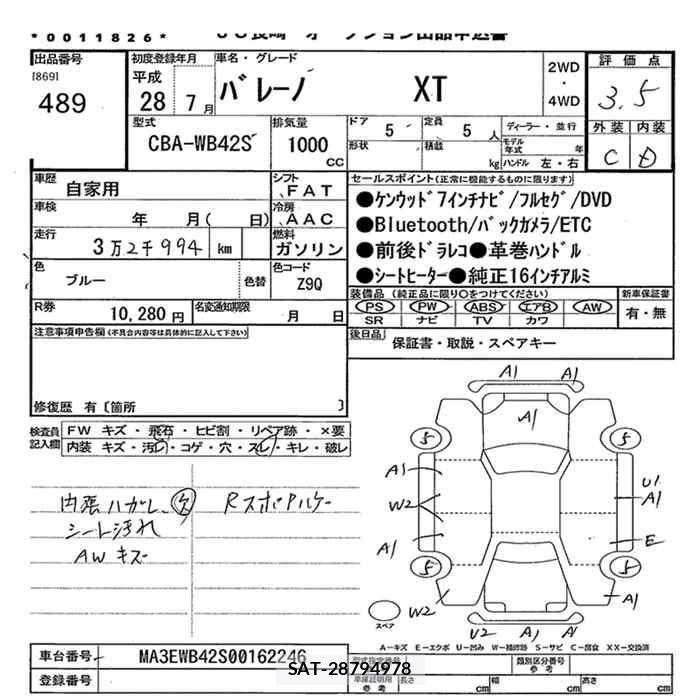 *0011826*
出品番号
[869]
489
初度登録年月
平成
28 年 7 月
車名・グレード
バレーノ XT
2WD
・
4WD
評価点
3.5
外装 内装
C D
型式
CBA-WB42S
排気量
1000
CC
ドア
5
定員
5 人
形状
積載
kg
ディーラー・並行
モデル年式 年
ハンドル 左・右
車歴
自家用
シフト
FAT
車検
年 月( 日)
冷房
AAC
走行
3万2千994 km
燃料
ガソリン
色
ブルー
色替
色コード
Z9Q
R券
10,280 円
名変通知期限
月 日
セールスポイント(正常に機能するものに限ります)
●ケンウッド7インチナビ/フルセグ/DVD
●Bluetooth/バックカメラ/ETC
●前後ドラレコ●革巻ハンドル
●シートヒーター●純正16インチアルミ
装備品(純正品に限り○をつけてください)
PS PW ABS エアB AW
SR ナビ TV カワ
新車保証書
有・無
後日品
保証書・取説・スペアキー
注意事項申告欄(不具合内容等は具体的に記入して下さい)
修復歴 有〔箇所 〕
検査員
記入欄
FW キズ・飛石・ヒビ割・リペア跡・×要
内装 キズ・汚レ・コゲ・穴・スレ・キレ・破レ
内張ハガレ、欠
シート汚れ
AWキズ
Rスポアルケー
A1 A1
A1
5 5
A1
W2
A1
U1
A1
E
5 5
W2
A1
スペア
U2 A1 A1
A―キズ E―エクボ U―凹み W―補修跡 S―サビ C―腐食 XX―交換済
車台番号
MA3EWB42S00162246
登録番号
SAT-28794978
型式指定番号
類別区分番号
参考
車庫証明用
参考
長さ cm
幅 cm
高さ cm